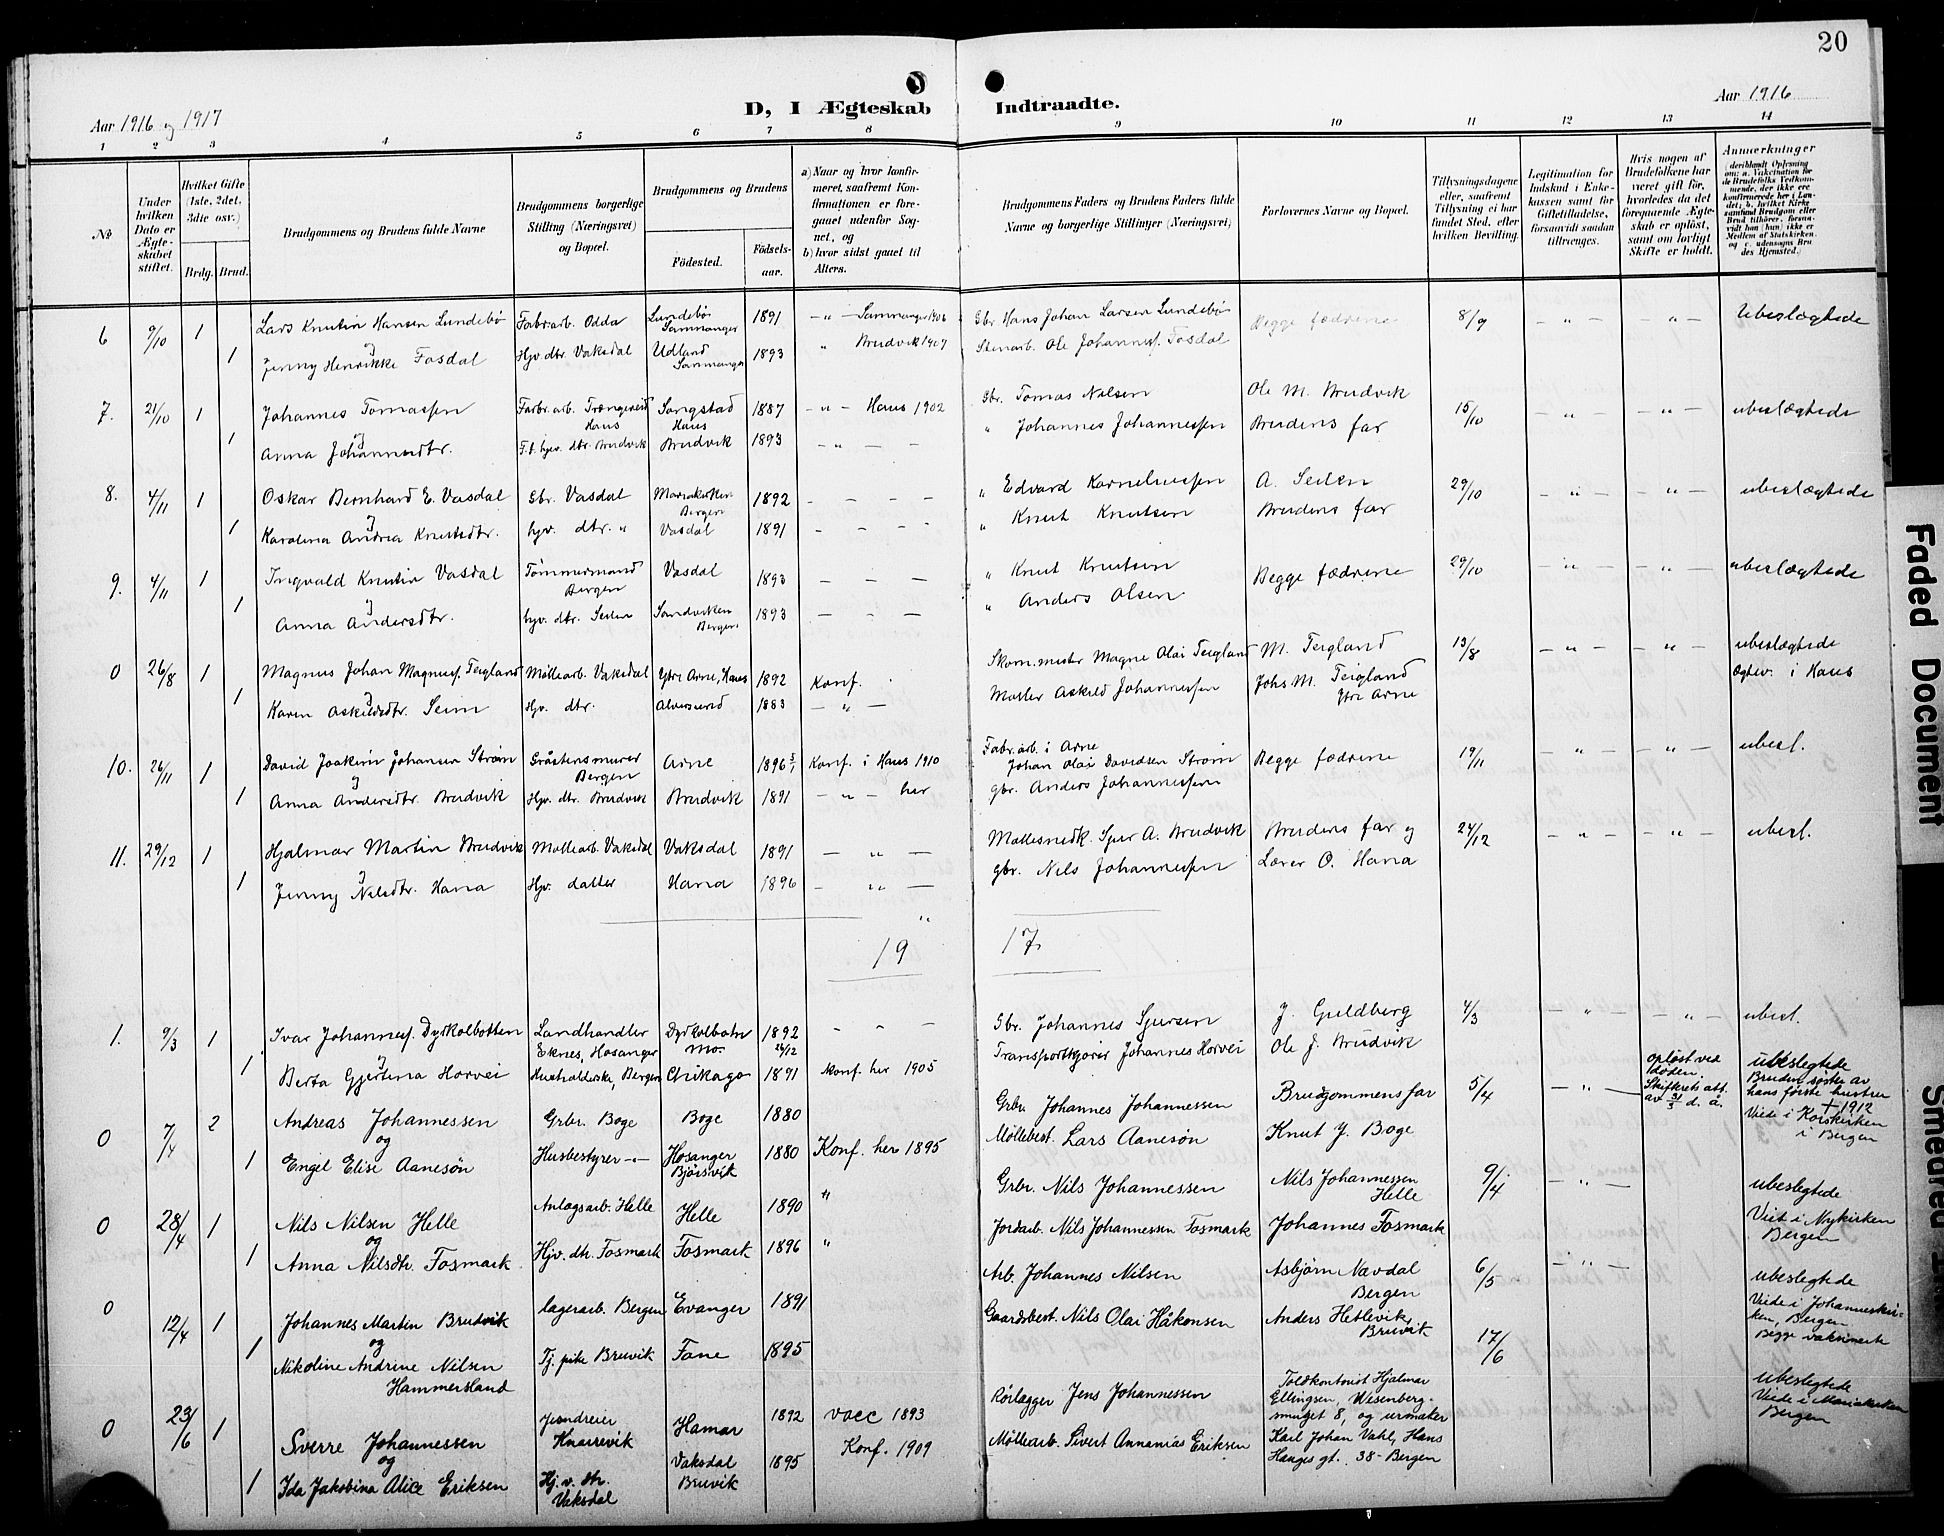 20
Aar 1916 og 1917
D, I Ægteskab Indtraadte.
Aar 1916
1 2 3 4 5 6 7 8 9 10 11 12 13 14
No
Under hvilken Dato er Ægteskabet stiftet.
Hvilket Gifte (1ste, 2det, 3die osv.)
Brdg. Brud.
Brudgommens og Brudens fulde Navne
Brudgommens borgerlige Stilling (Næringsvei) og Bopæl.
Brudgommens og Brudens
Födested.
Födselsaar.
a) Naar og hvor konfirmeret, saafremt Konfirmationen er foregaaet udenfor Sognet, og
b) hvor sidst gaaet til Alters.
Brudgommens Faders og Brudens Faders fulde Navne og borgerlige Stillinger (Næringsvei)
Forlovernes Navne og Bopæl.
Tillysningsdagene eller, saafremt Tillysning ei har fundet Sted, efter hvilken Bevilling.
Legitimation for Indskud i Enkekassen samt for Giftetilladelse, forsaavidt saadan tiltrænges.
Hvis nogen af Brudefolkene har været gift før, hvorledes da det foregaaende Ægteskab er opløst, samt om lovligt Skifte er holdt.
Anmærkninger
6 9/10 1 Lars Knutin Hansen Lundebø Fabr.arb. Odda Lundebø Sammanger 1891 – " – Sammanger 1906 Gbr. Hans Johan Larsen Lundebø Begge fædrene 8/9 – " – – " – Ubeslægtede
og
1 Jenny Henrikke Fosdal Hjv. dtr. Vaksdal Udland Sammanger 1893 " Brudvik 1907 Stenarb. Ole Johannesf. Fosdal
7. 21/10 1 Johannes Tomassen Fabr. arb. Trængereid Haus Songstad Haus 1887 – " – Haus 1902 Gbr. Tomas Nilsen Ole M. Brudvik 15/10 – " – – " – ubeslægtede
og
1 Anna Johannesdtr. F.t. hjv. dtr. Brudvik Brudvik 1893 – " – " Johannes Johannessen Brudens far
8. 4/11 1 Oskar Bernhard E. Vasdal Gbr. Vasdal Mariakirken Bergen 1892 – – – – " Edvard Korneliussen A. Seilen 29/10 – " – – " – ubeslægtede
og
1 Karolina Andrea Knutsdtr. hjv. dtr. " Vasdal 1891 – – – – " Knut Knutsen Brudens far
9. 4/11 1 Ingvald Knutin Vasdal Tømmermand Bergen Vasdal 1893 – – – " Knut Knutsen Begge fædrene 29/10 – " – – " – ubeslægtede
og
1 Anna Andersdtr. hjv. dtr. Seilen Sandviken Bergen 1893 – – – " Anders Olsen
0 26/8 1 Magnus Johan Magnusf. Teigland Møllearb. Vaksdal Ytre Arne, Haus 1892 Konf. Skom.mester Magne Olai Teigland M. Teigland 13/8 – " – – " – ubeslægtede
og
1 Karen Askildsdtr. Seim Hjv. dtr. Alversund 1883 – " – Møller Askild Johannessen Johs M. Teigland Ytre Arne Ægtev. i Haus
10. 26/11 1 David Joakim Johansen Strøm Gråstensmurer Bergen Arne 1896 5/1 Konf. i Haus 1910 Fabr. arb. i Arne Johan Olai Davidsen Strøm Begge fædrene 19/11 – " – – " – ubesl.
og
1 Anna Andersdtr. Brudvik Hjv. dtr. Brudvik Brudvik 1891 – " – her gbr. Anders Johannessen
11. 29/12 1 Hjalmar Martin Brudvik Møllearb. Vaksdal Vaksdal 1891 – " – Møllesnedk. Sjur A. Brudvik Brudens far og 24/12 – " – – " – ubesl.
og
1 Jenny Nilsdtr. Hana Hjv. datter Hana 1896 – " – gbr. Nils Johannessen Lærer O. Hana
"
19 17.
1. 9/3 1 Ivar Johannesf. Dyrkolbotten Landhandler Eknes, Hosanger Dyrkolbotn Mo. 1892 26/12 – – – Gbr. Johannes Sjursen J. Guldberg 4/3 – " – – " – ubesl.
og
1 Berta Gjertina Horvei Husholderske, Bergen Chikago 1891 Konf. her 1905 Transportkjører Johannes Horvei Ole J. Brudvik
0 7/4 2 Andreas Johannessen Grbr. Boge Boge 1880 Grbr. Johannes Johannessen Brudgommens far 5/4 – " – opløst ved døden. Skifterets att. av 31/3 d. å. ubeslegtede Bruden søster av hans første hustru + 1912
og
1 Engel Elise Aanesön Husbestyrer –"– Hosanger Bjørsvik 1880 Konf. her 1895 Møllebest. Lars Aanesön Knut J. Boge Viede i Korskirken i Bergen
0 28/4 1 Nils Nilsen Helle Anlægsarb. Helle Helle 1890 " Grbr. Nils Johannessen Nils Johannessen Helle 9/4 – " – ubeslegtede
og
1 Anna Nilsdtr. Fosmark. Hjv. dtr. Fosmark Fosmark 1896 " Jordarb. Nils Johannessen Fosmark Johannes Fosmark Viet i Nykirken Bergen
0 12/4 1 Johannes Martin Brudvik lagerarb. Bergen Evanger 1891 Arb. Johannes Nilsen Asbjørn Nævdal Bergen 6/5 – " – ubeslegtede
og
1 Nikoline Andrine Nilsen Hammersland Tj. pike Bruvik Fane 1895 Gaardsbest. Nils Olai Håkonsen Anders Hetlevik, Bruvik 17/6 Viede i Johanneskirken, Bergen Begge vaksinerte
0 23/6 1 Sverre Johannessen Knarrevik Hamar 1892 vacc 1893 Rørlægger Jens Johannessen Toldkontorist Hjalmar Ellingsen, Wesenbergsmuget 8, og urmaker ubeslegtede Viede i Mariakirken Bergen
og
1 Ida Jakobina Alice Eriksen Hj.v. dtr. Vaksdal Vaksdal Bruvik 1895 Konf. 1909 Møllearb. Sivert Annanias Eriksen Karl Johan Vahl, Hans Hauges gt. 38 - Bergen
Faded Document
Smeared Ink